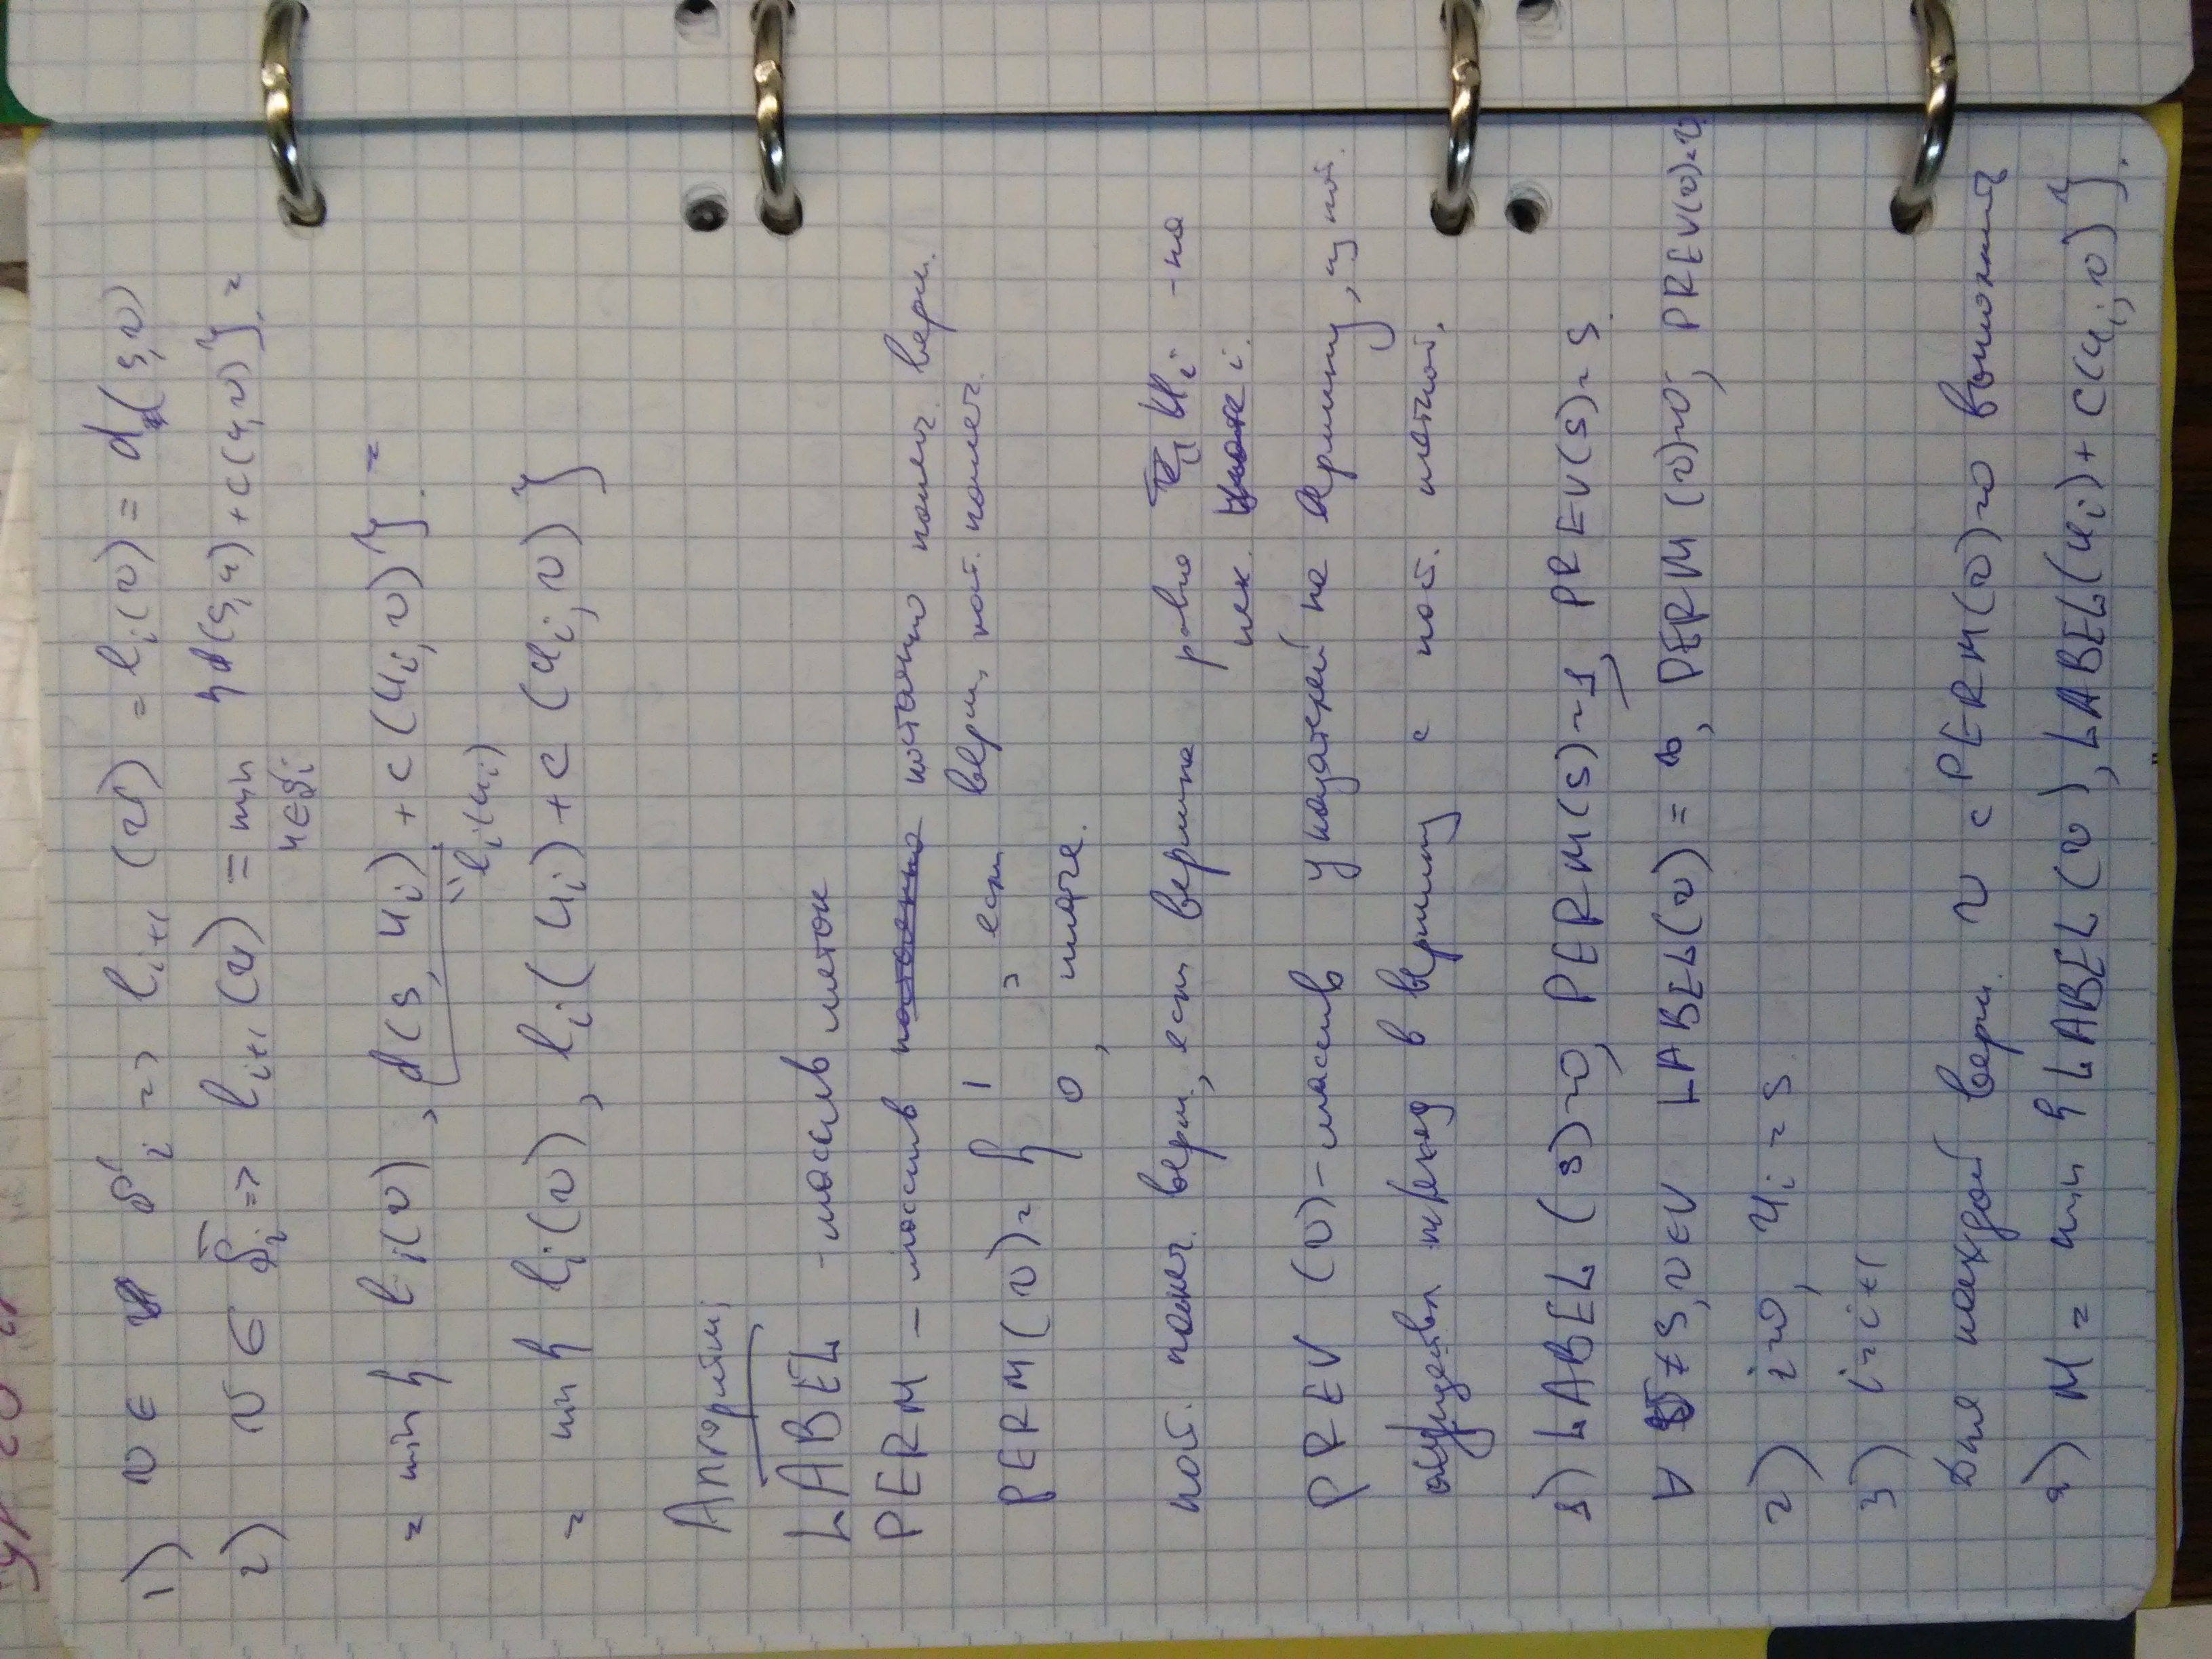 1) v ∈ S_i => l_{i+1}(v) = l_i(v) = d(s,v)
2) v ∈ S̄_i => l_{i+1}(v) = min_{u∈S_i} {d(s,u)+c(u,v)} =
= min { l_i(v), d(s,u_i)+c(u_i,v)} =
l_i(u_i)
= min { l_i(v), l_i(u_i)+c(u_i,v)}
Алгоритм:
LABEL - массив меток
PERM - массив постоянно помеч. верш.
PERM(v)= { 1, если верш. кот. помеч.
0, иначе.
пост. помеч. верш., если вершина равна u_i - на
нек. шаге i.
PREV(v) - массив указателей на вершину, из кот.
осуществл. переход в вершину с пост. меткой.
1) LABEL(s)=0, PERM(s)=1, PREV(s)=s
∀ v≠s, v∈V LABEL(v)=∞, PERM(v)=0, PREV(v)=v
2) i=0, u_i=s
3) i=i+1
Для каждой верш. v с PERM(v)=0 выполнить
а) M = min {LABEL(v), LABEL(u_i)+c(u_i,v)}.